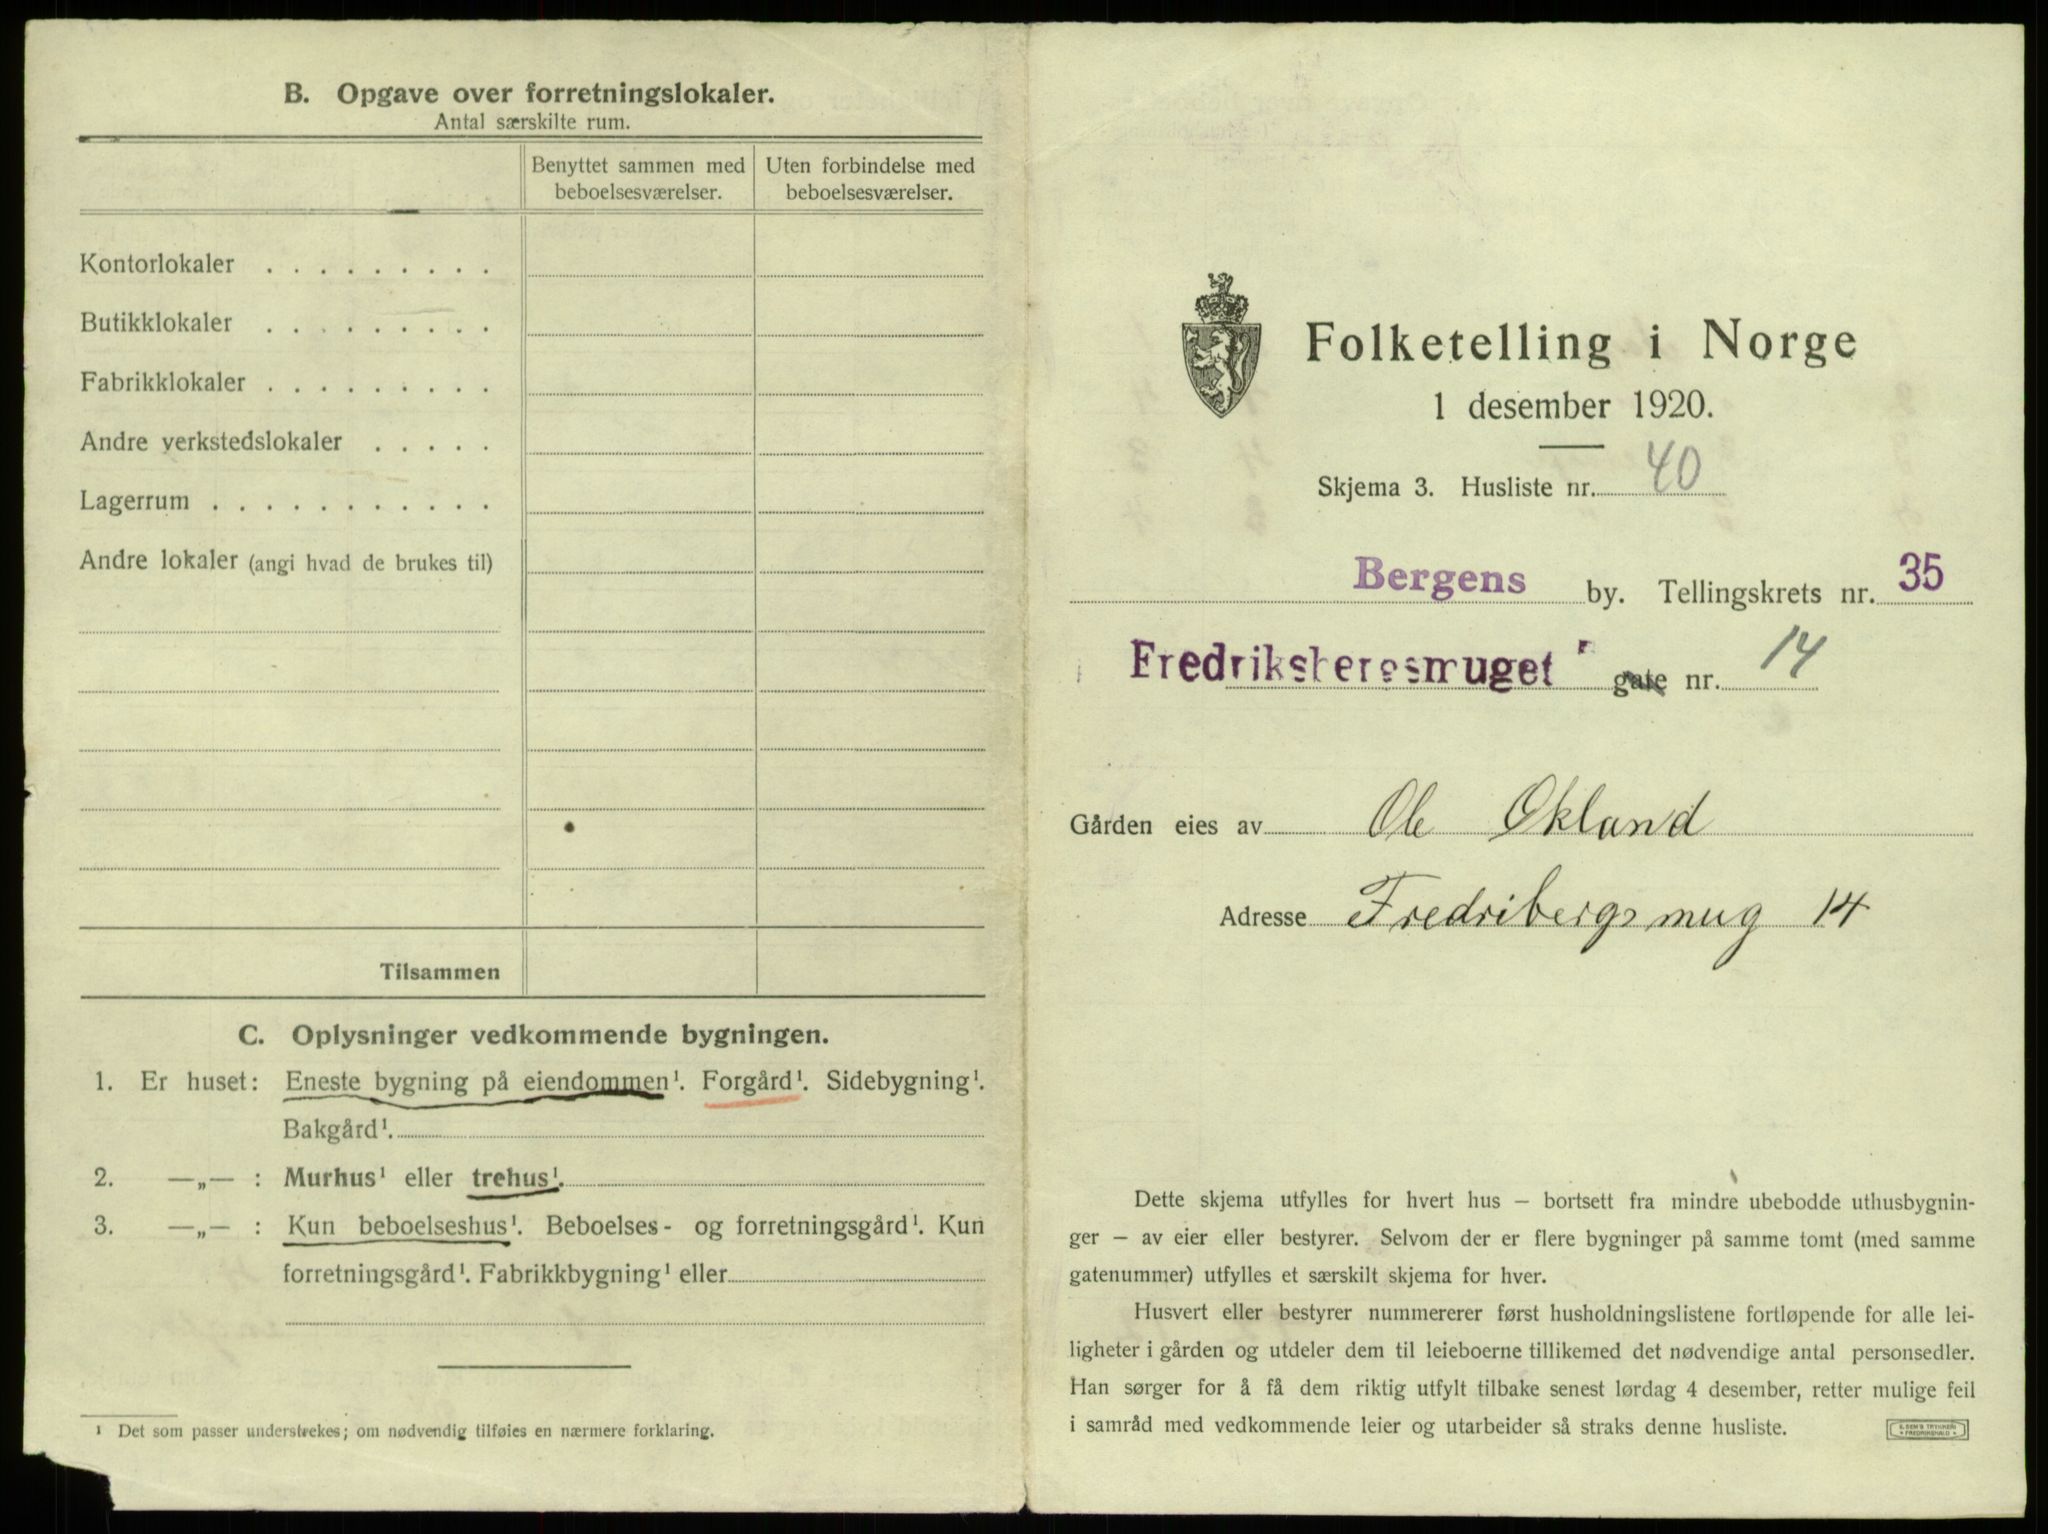 B. Opgave over forretningslokaler.
Antal særskilte rum.
Benyttet sammen med beboelsesværelser.
Uten forbindelse med beboelsesværelser.
Kontorlokaler . . . . . . . . .
Butikklokaler . . . . . . . . .
Fabrikklokaler . . . . . . . . .
Andre verkstedslokaler . . . . .
Lagerrum . . . . . . . . . . .
Andre lokaler (angi hvad de brukes til)
Tilsammen
C. Oplysninger vedkommende bygningen.
1. Er huset: Eneste bygning på eiendommen¹. Forgård¹. Sidebygning¹.
Bakgård¹.
2. —„— : Murhus¹ eller trehus¹.
3. —„— : Kun beboelseshus¹. Beboelses- og forretningsgård¹. Kun
forretningsgård¹. Fabrikkbygning¹ eller
¹ Det som passer understrekes; om nødvendig tilføies en nærmere forklaring.
Folketelling i Norge
1 desember 1920.
Skjema 3. Husliste nr. 40
Bergens by. Tellingskrets nr. 35
Fredriksbergsmuget gate nr. 14
Gården eies av Ole Økland
Adresse Fredribergsmug 14
Dette skjema utfylles for hvert hus – bortsett fra mindre ubebodde uthusbygnin-
ger – av eier eller bestyrer. Selvom der er flere bygninger på samme tomt (med samme
gatenummer) utfylles et særskilt skjema for hver.
Husvert eller bestyrer nummererer først husholdningslistene fortløpende for alle lei-
ligheter i gården og utdeler dem til leieboerne tillikemed det nødvendige antal personsedler.
Han sørger for å få dem riktig utfylt tilbake senest lørdag 4 desember, retter mulige feil
i samråd med vedkommende leier og utarbeider så straks denne husliste.
E. SEM'S TRYKKERI
FREDRIKSHALD